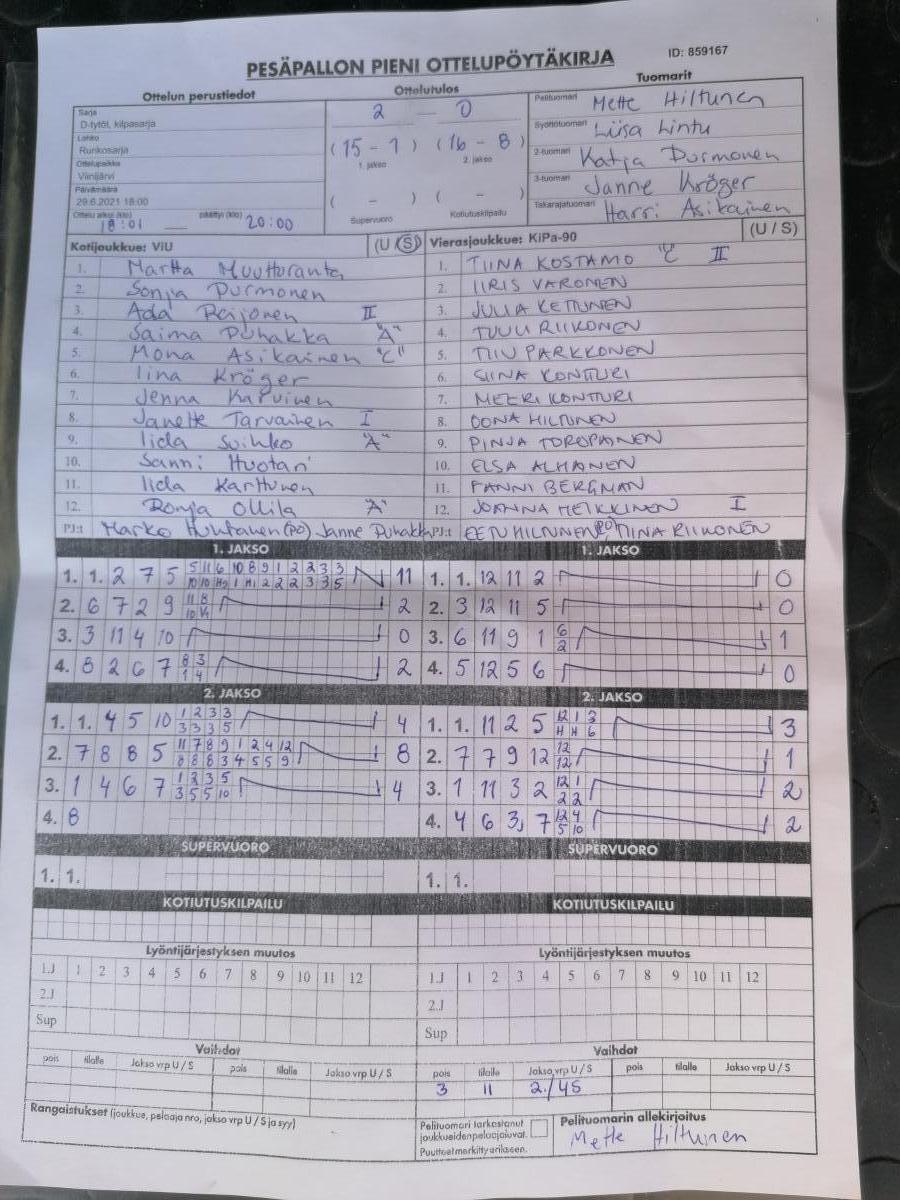 PESÄPALLON PIENI OTTELUPÖYTÄKIRJA
ID: 859167
Ottelun perustiedot
Sarja
D-tytöt, kilpasarja
Lohko
Runkosarja
Ottelupaikka
Viinijärvi
Päivämäärä
29.6.2021 18:00
Ottelu alkoi (klo) 18:01 päättyi (klo) 20:00
Ottelutulos
2 - 0
(15 - 1) (16 - 8)
1. jakso 2. jakso
( - ) ( - )
Supervuoro Kotiutuskilpailu
Tuomarit
Pelituomari Mette Hiltunen
Syöttötuomari Liisa Lintu
2-tuomari Katja Purmonen
3-tuomari Janne Kröger
Takarajatuomari Harri Asikainen
Kotijoukkue: ViU (U / S)
1. Martta Muuttoranta
2. Sonja Purmonen
3. Ada Reijonen II
4. Saima Puhakka "A"
5. Mona Asikainen "C"
6. Iina Kröger
7. Jenna Karvinen
8. Janette Tarvainen I
9. Iida Suihko "A"
10. Sanni Huotari
11. Iida Karttunen
12. Ronja Ollila "A"
PJ:t Marko (PO) Janne Puhakka
Vierasjoukkue: KiPa-90 (U / S)
1. TIINA KOSTAMO "C" II
2. IIRIS VARONEN
3. JULIA KETTUNEN
4. TUULI RIIKONEN
5. TIIU PARKKONEN
6. SIINA KONTTURI
7. MEERI KONTTURI
8. OONA HILTUNEN
9. PINJA TOROPAINEN
10. ELSA ALHANEN
11. FANNI BERGMAN
12. JOANNA HEIKKINEN I
PJ:t EETU HILTUNEN (PO), TIINA RIIKONEN
1. JAKSO
1. 1. 2 7 5 11
2. 6 7 2 9 2
3. 3 11 4 10 0
4. 8 2 6 7 8 3 2
1 4
1. JAKSO
1. 1. 12 11 2 0
2. 3 12 11 5 0
3. 6 11 9 1 6 1
2
4. 5 12 5 6 0
2. JAKSO
1. 1. 4 5 10 1 2 3 3 4
3 3 3 5
2. 7 8 8 5 11 7 8 9 1 2 4 12 8
8 8 8 3 4 5 5 9
3. 1 4 6 7 1 2 3 5 4
3 5 5 10
4. 8
2. JAKSO
1. 1. 11 2 5 12 1 3 3
H H 6
2. 7 7 9 12 12 1
12
3. 1 11 3 2 12 1 2
2 2
4. 4 6 3, 7 12 4 2
5 10
SUPERVUORO
1. 1.
SUPERVUORO
1. 1.
KOTIUTUSKILPAILU
KOTIUTUSKILPAILU
Lyöntijärjestyksen muutos
1.J 1 2 3 4 5 6 7 8 9 10 11 12
2.J
Sup
Lyöntijärjestyksen muutos
1.J 1 2 3 4 5 6 7 8 9 10 11 12
2.J
Sup
Vaihdot
pois tilalle Jakso vrp U / S pois tilalle Jakso vrp U / S
Vaihdot
pois tilalle Jakso vrp U / S pois tilalle Jakso vrp U / S
3 11 2./4S
Rangaistukset (joukkue, pelaaja nro, jakso vrp U / S ja syy)
Pelituomari tarkastanut
joukkueiden pelaajaluvat.
Puutteet merkitty erikseen.
Pelituomarin allekirjoitus
Mette Hiltunen